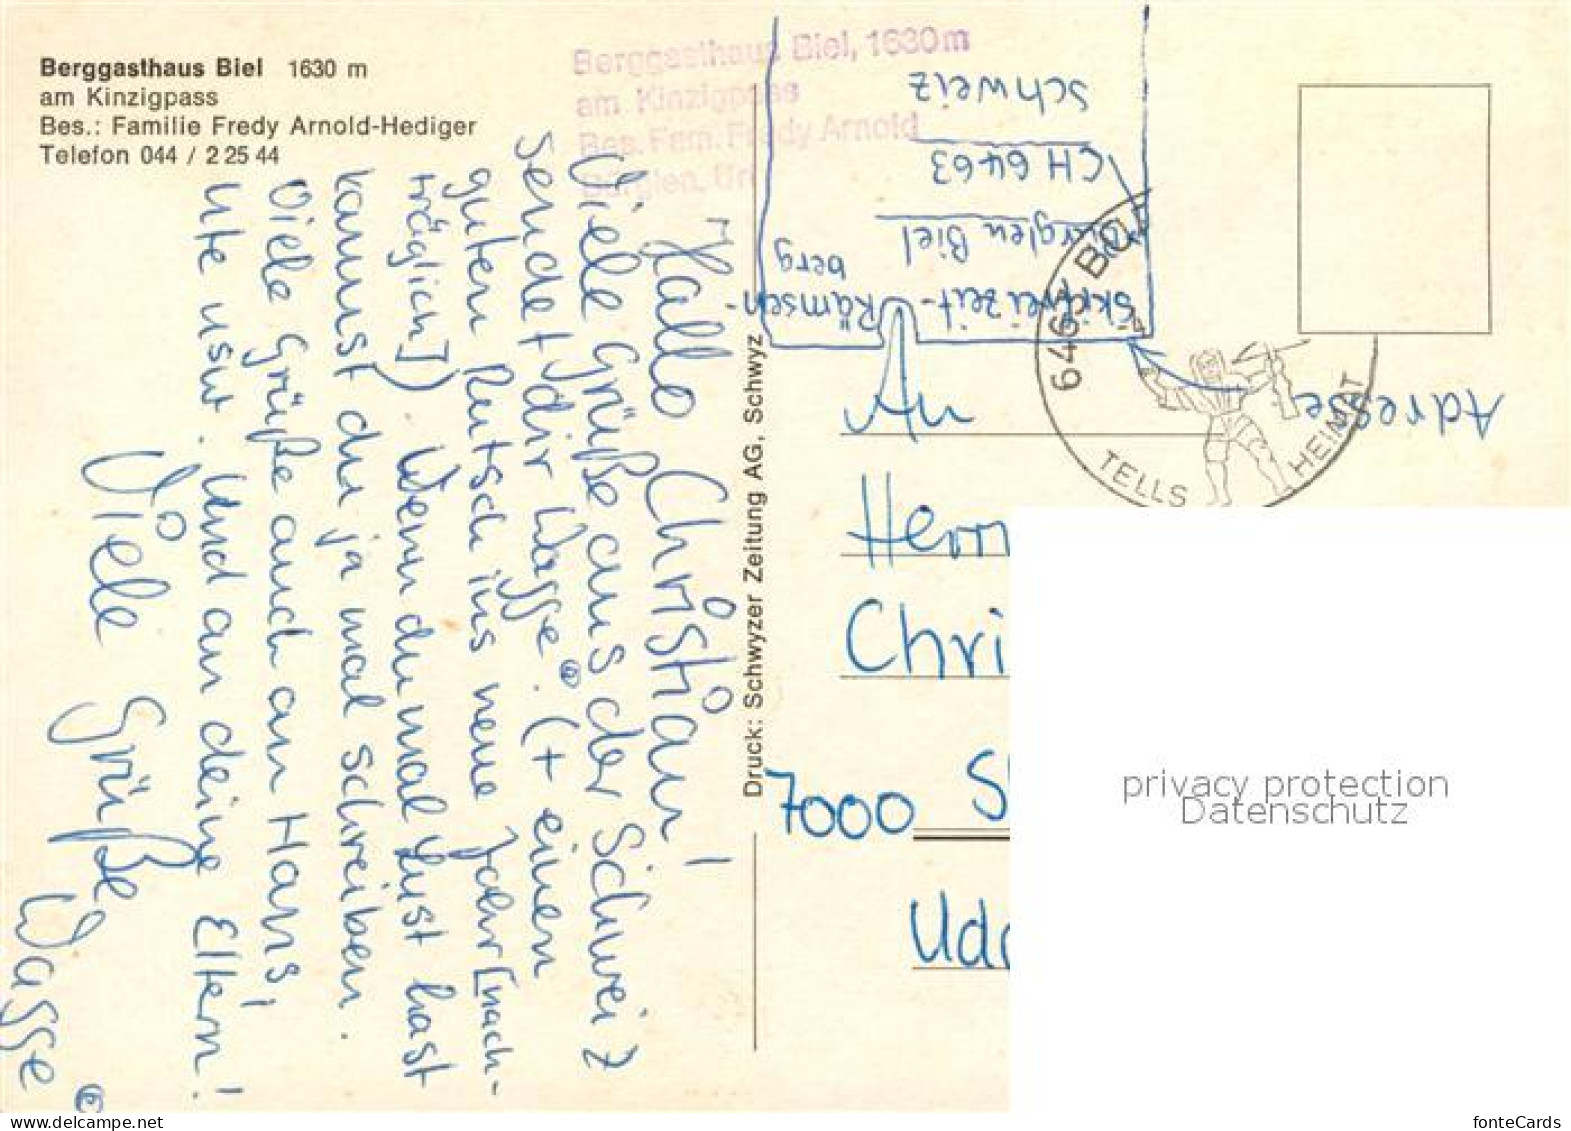 Berggasthaus Biel 1630 m
am Kinzigpass
Bes.: Familie Fredy Arnold-Hediger
Telefon 044 / 2 25 44
Berggasthaus Biel, 1630m
am Kinzigpass
Bes. Fam. Fredy Arnold
Bürglen, Uri
Hallo Christian!
Viele Grüße aus der Schweiz
sendet dir Wasse. (+ einen
guten Rutsch ins neue Jahr [nach-
träglich]) Wenn du mal Lust hast
kannst du ja mal schreiben.
Viele Grüße auch an Hans,
Ute usw. Und an deine Eltern!
Viele Grüße,
Wasse
Druck: Schwyzer Zeitung AG, Schwyz
Adresse
Skifreizeit-Ramsen-
berg
Bürglen Biel
CH 6463
Schweiz
6463 BÜR
TELLS HEIMAT
An
Herrn
Chri
7000 S
Udo
privacy protection
Datenschutz
www.delcampe.net
fonteCards